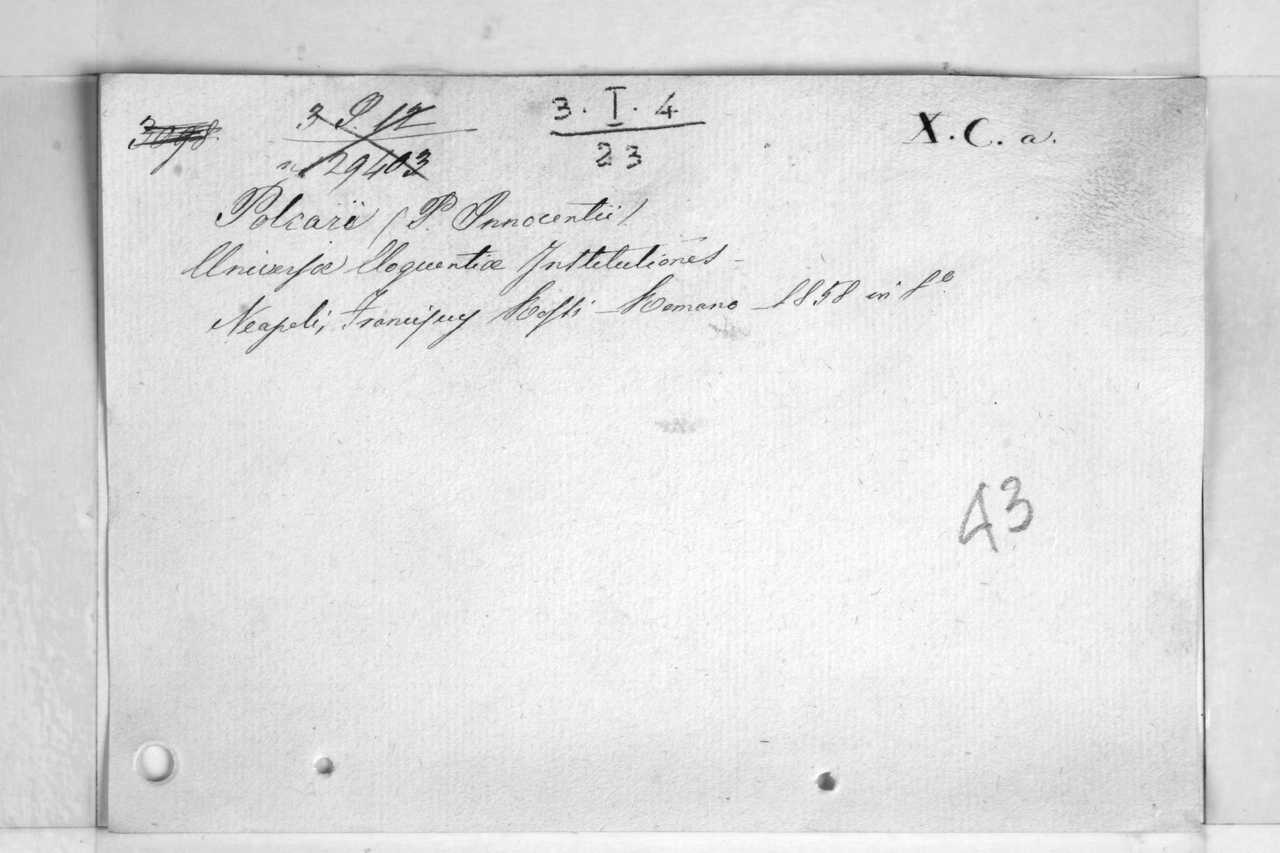 3098. 3 P. 17 3. I. 4 X. C. a.
n. 29403 23
Polcarii (P. Innocentii)
Universæ Eloquentiæ Institutiones –
Neapoli, Franciscus Rossi – Romano – 1858 in 8º
43